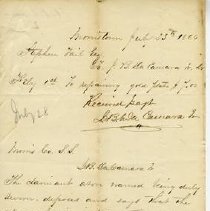 Morristown July 25th 1866
Stephen Vail Esq
To J. B. La Camara Jr Dr
To repairing gold
Received payt
J. B. La Camara Jr
July 28
Morris Co. S.S.
J B. La Camara Jr
The claimant above named being duly
sworn, deposes and says that the